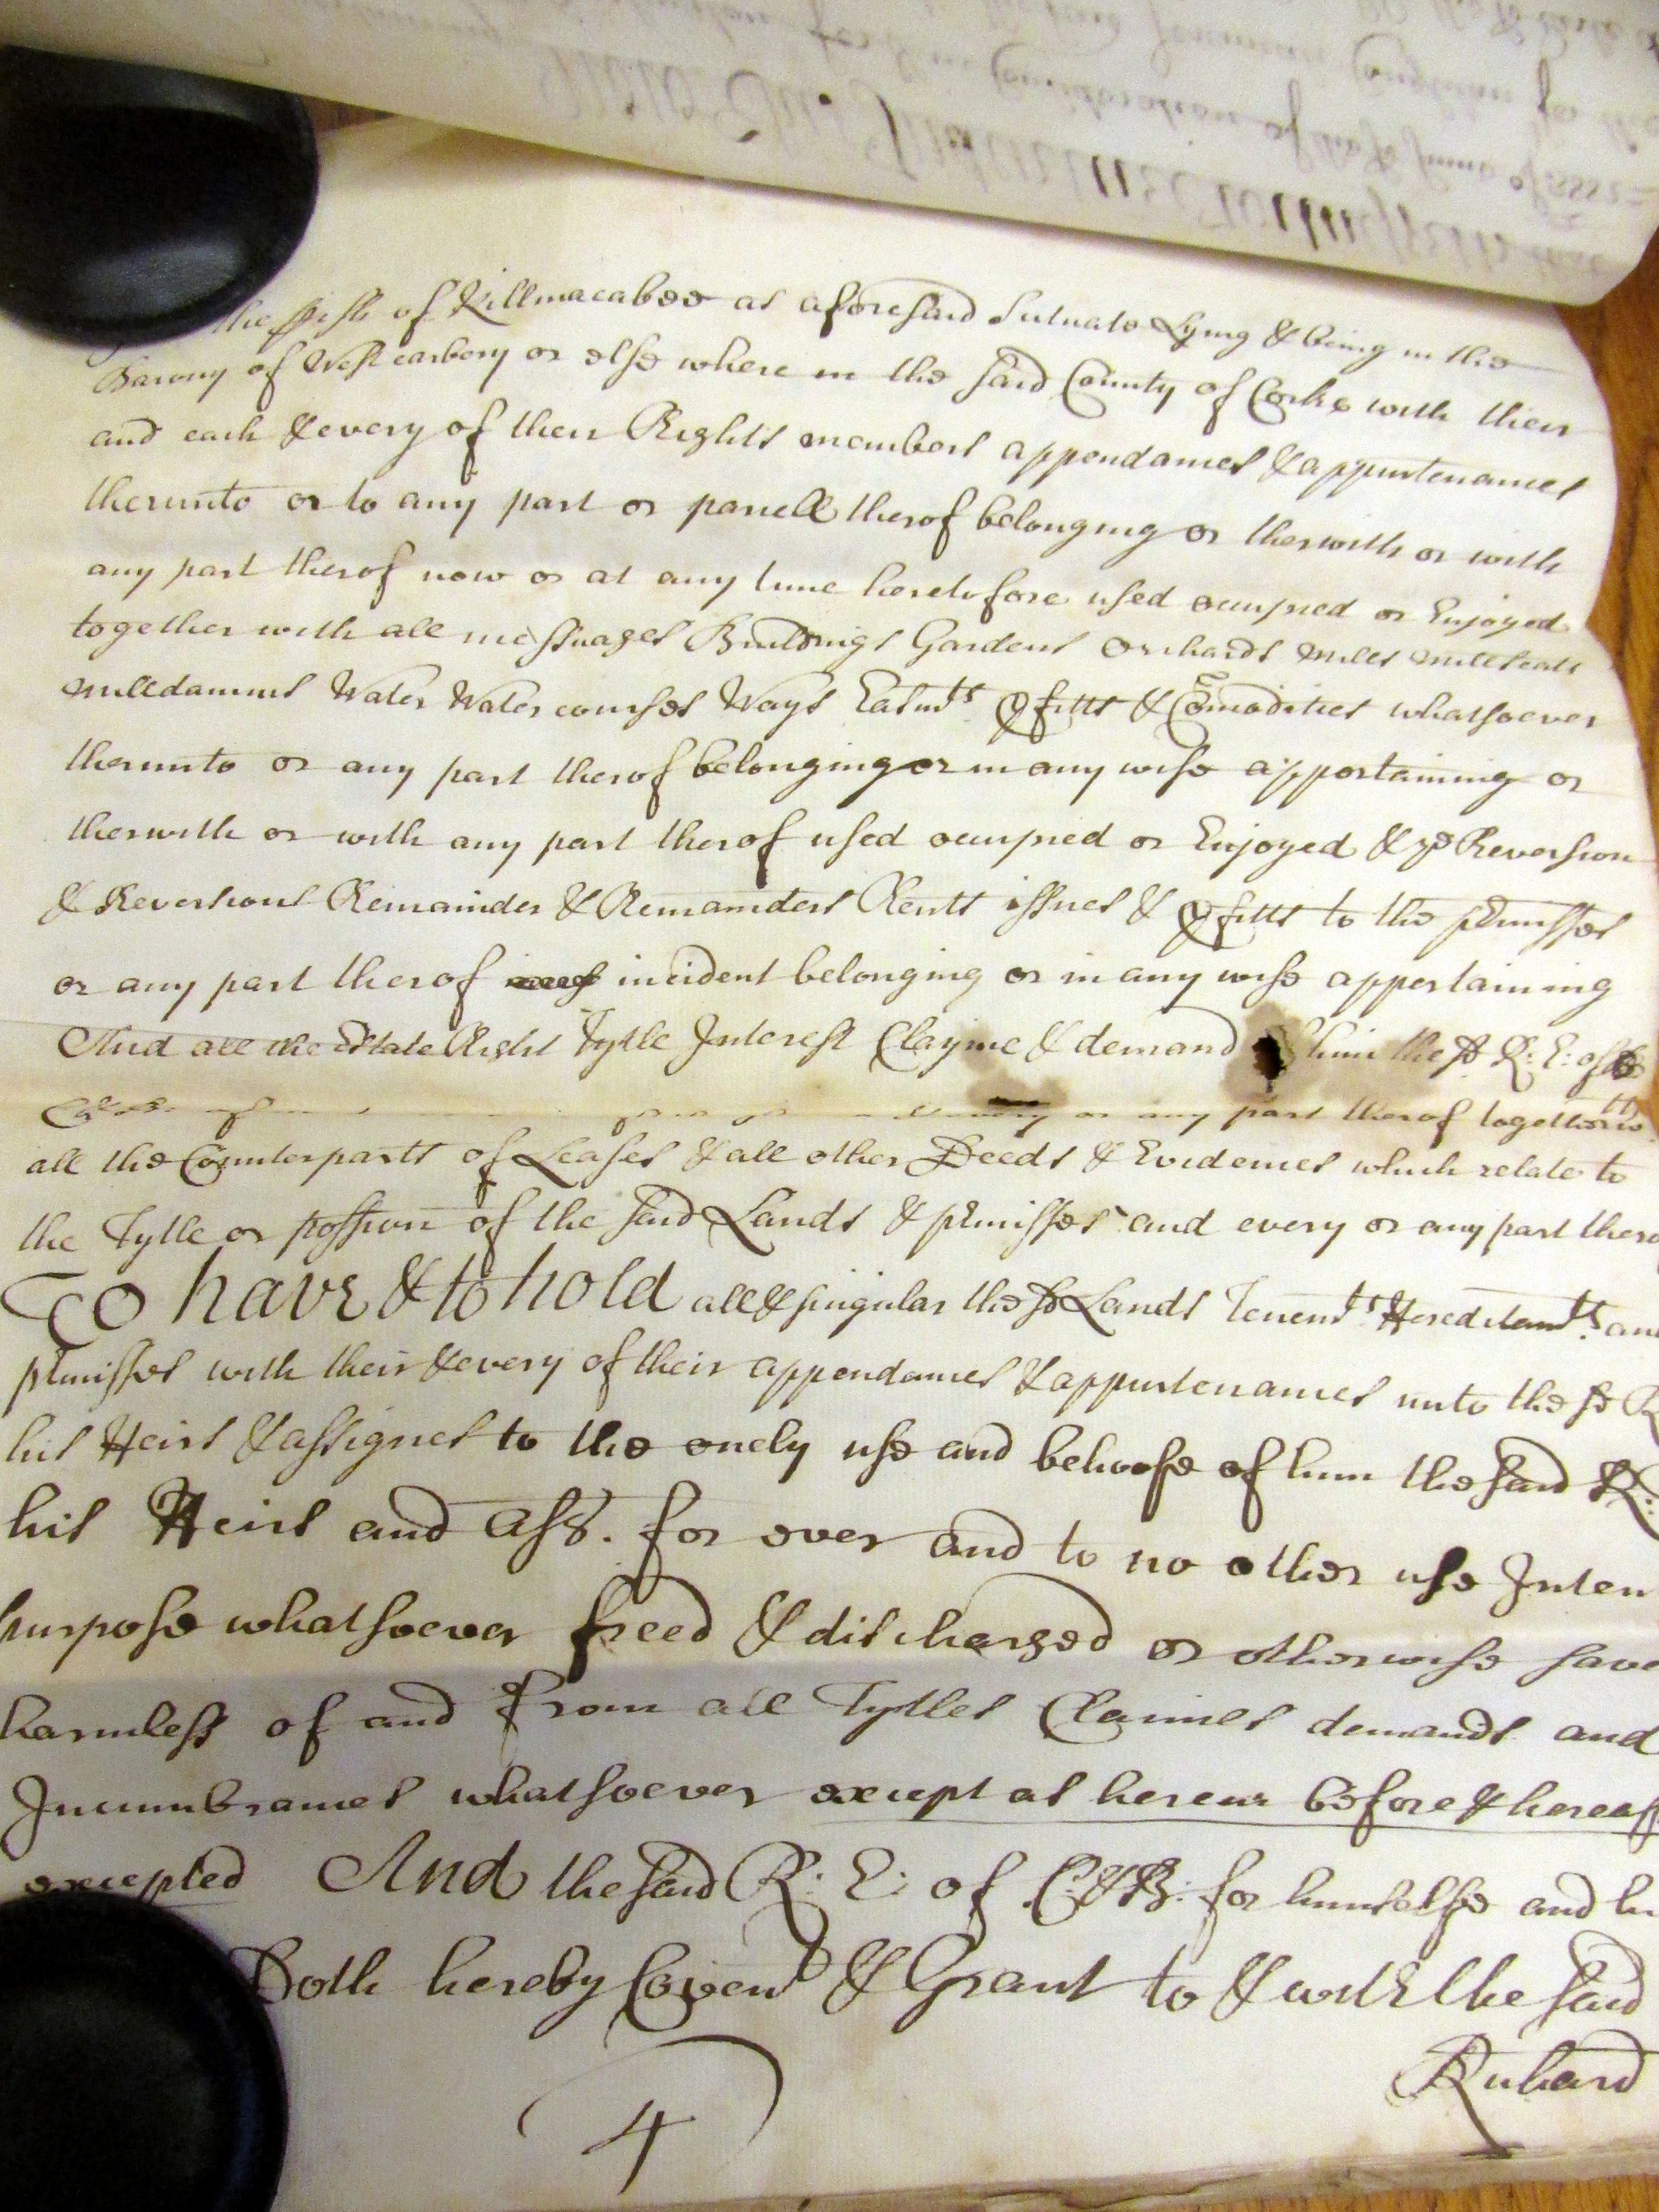 the pish of Killmacabee as aforesaid Scituate Lying & being in the
Barony of West carbery or else where in the said County of Corke with their
and each & every of their Rights members appendances & appurtenances
therunto or to any part or parcell therof belonging or therwith or with
any part therof now or at any time heretofore used occupied or Enjoyed
together with all messuages Buildings Gardens Orchards mills millseats
milldamms Water Water courses Ways Easmts pfitts & Comodities whatsoever
therunto or any part therof belonging or in any wise appertaining or
therwith or with any part therof used occupied or Enjoyed & ye Reversion
& Reversions Remainder & Remainders Rents issues & pfitts to the pmisses
or any part therof incident belonging or in any wise appertaining
And all the Estate Right Tytle Interest Clayme & demand him the sd R: E: of
or any part therof together wth
all the Counterparts of Leases & all other Deeds & Evidences which relate to
the Tytle or possion of the said Lands & pmisses and every or any part thero
To have & to hold all & singular the sd Lands Tenemts Hereditamts an
pmisses with their & every of their appendances & appurtenances unto the sd R
his Heirs & assignes to the onely use and behoofe of him the said R:
his Heirs and Ass. for ever and to no other use Inten
purpose whatsoever freed & discharged or otherwise save
harmless of and from all Tytles Claimes demands and
Incumbrances whatsoever except as herein before & hereaf
excepted And the said R: E: of C: & B: for himselfe and hi
Doth hereby Covent & Grant to & with the said
Richard
4